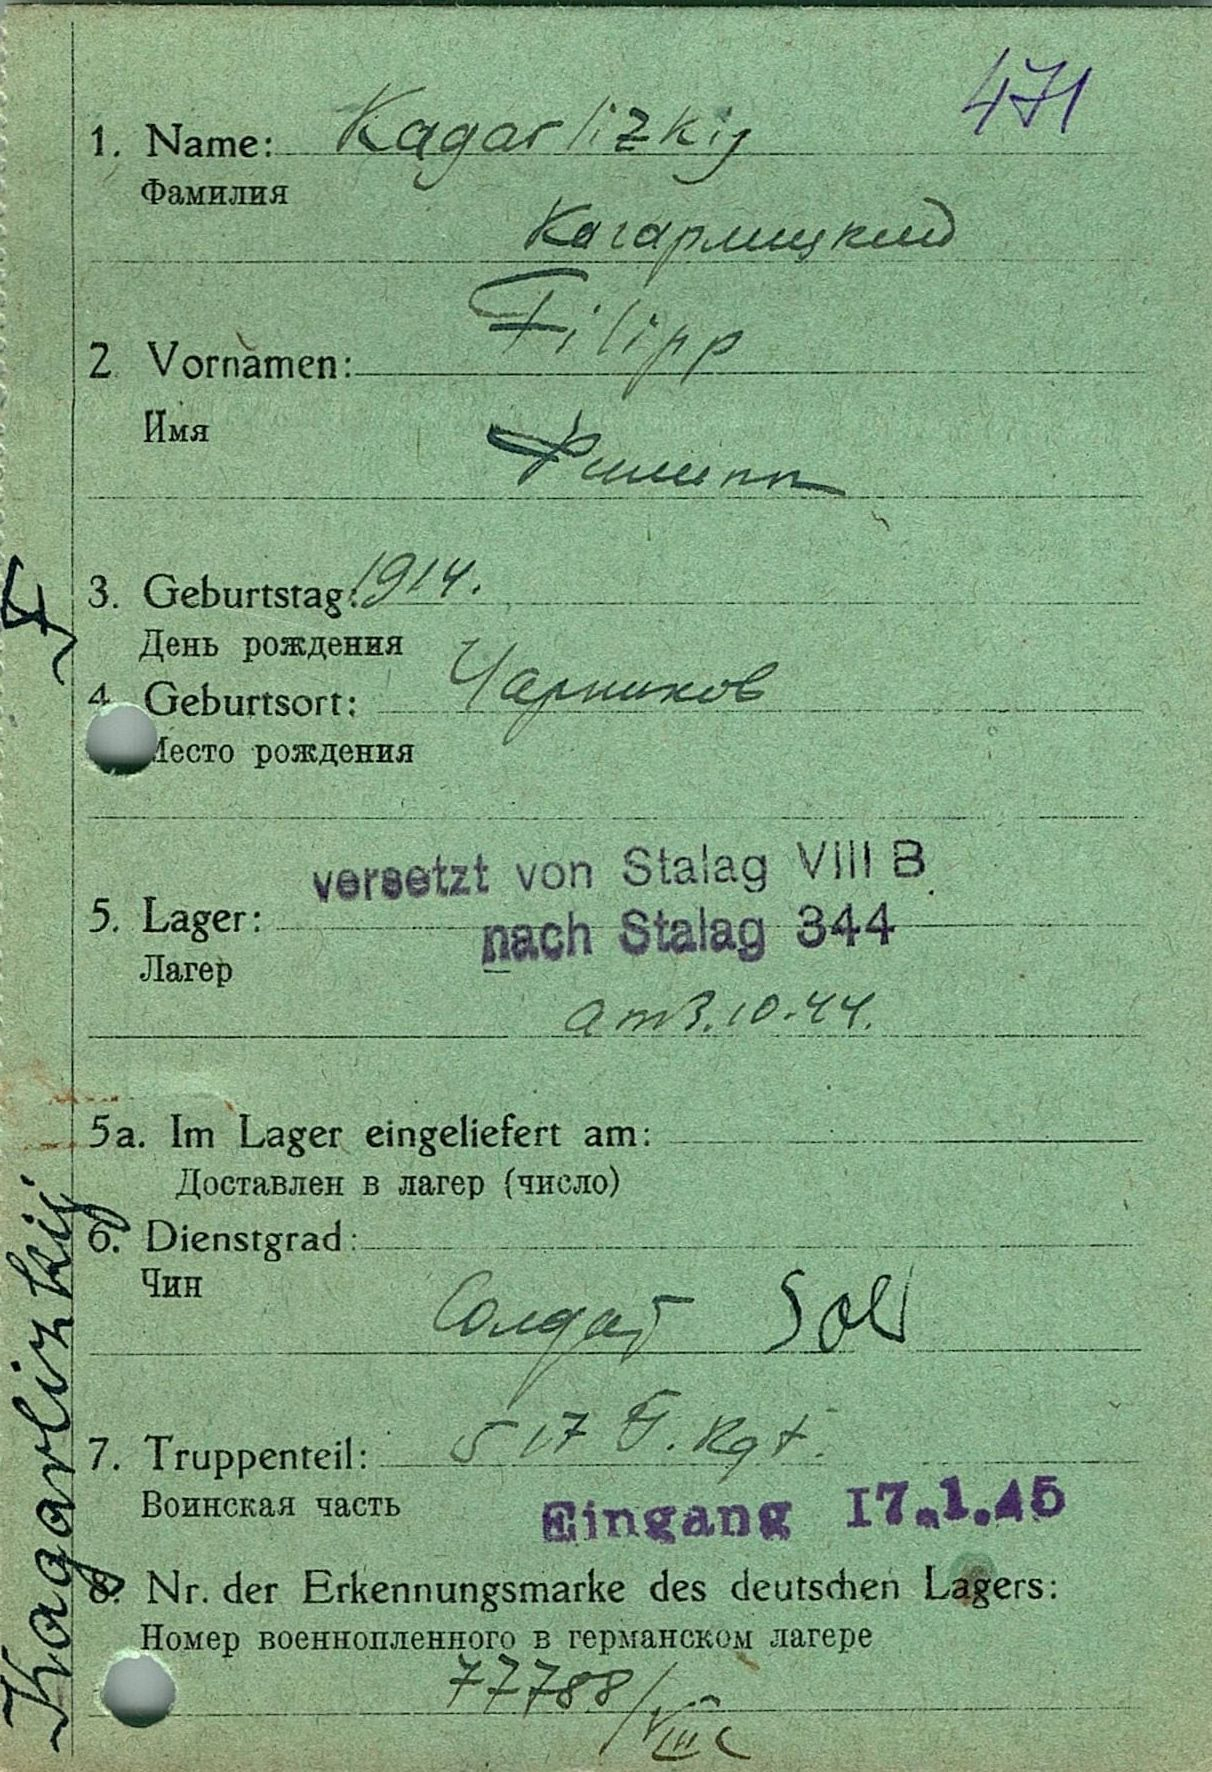 471
1. Name: Kagarlizkij
Фамилия
Кагарлицкий
Filipp
2 Vornamen:
Имя
Филипп
3. Geburtstag: 1914.
День рождения
4. Geburtsort: Чарников
Место рождения
versetzt von Stalag VIII B
5. Lager: nach Stalag 344
Лагер
am 3.10.44.
5a. Im Lager eingeliefert am:
Доставлен в лагер (число)
6. Dienstgrad:
Чин
Солдат Sol
7. Truppenteil: 517 J. Rgt.
Воинская часть
Eingang 17.1.45
8. Nr. der Erkennungsmarke des deutschen Lagers:
Номер военнопленного в германском лагере
77788/VIII C
Kagarlizkij